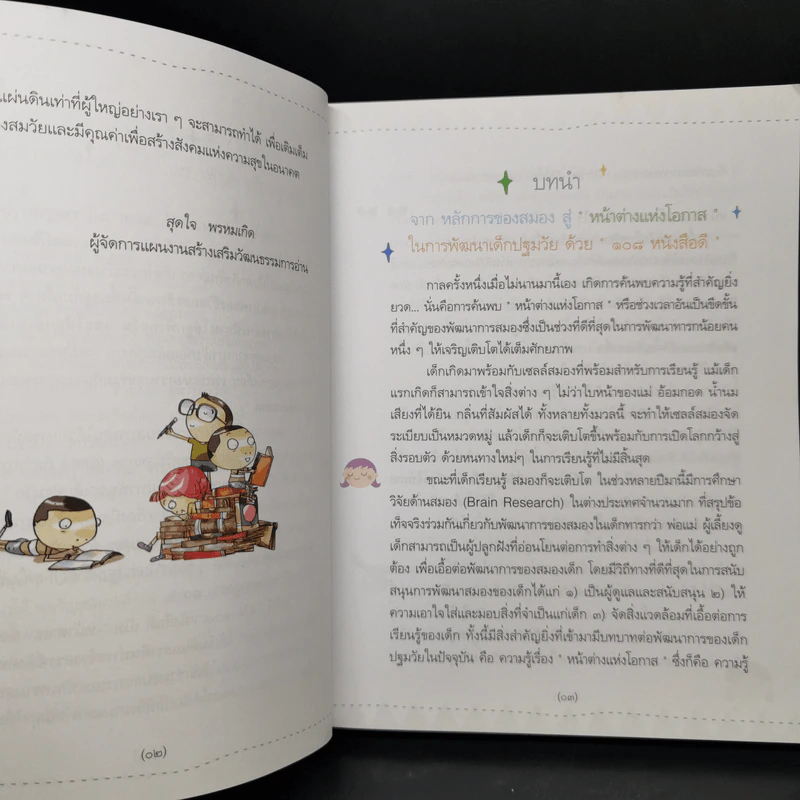 แผ่นดินเท่าที่ผู้ใหญ่อย่างเรา ๆ จะสามารถทำได้ เพื่อเติมเต็ม
สมวัยและมีคุณค่าเพื่อสร้างสังคมแห่งความสุขในอนาคต
สุดใจ พรหมเกิด
ผู้จัดการแผนงานสร้างเสริมวัฒนธรรมการอ่าน
(๐๒)
บทนำ
จาก หลักการของสมอง สู่ " หน้าต่างแห่งโอกาส "
ในการพัฒนาเด็กปฐมวัย ด้วย " ๑๐๘ หนังสือดี "
กาลครั้งหนึ่งเมื่อไม่นานมานี้เอง เกิดการค้นพบความรู้ที่สำคัญยิ่ง
ยวด... นั่นคือการค้นพบ " หน้าต่างแห่งโอกาส " หรือช่วงเวลาอันเป็นขีดขั้น
ที่สำคัญของพัฒนาการสมองซึ่งเป็นช่วงที่ดีที่สุดในการพัฒนาทารกน้อยคน
หนึ่ง ๆ ให้เจริญเติบโตได้เต็มศักยภาพ
เด็กเกิดมาพร้อมกับเซลล์สมองที่พร้อมสำหรับการเรียนรู้ แม้เด็ก
แรกเกิดก็สามารถเข้าใจสิ่งต่าง ๆ ไม่ว่าใบหน้าของแม่ อ้อมกอด น้ำนม
เสียงที่ได้ยิน กลิ่นที่สัมผัสได้ ทั้งหลายทั้งมวลนี้ จะทำให้เซลล์สมองจัด
ระเบียบเป็นหมวดหมู่ แล้วเด็กก็จะเติบโตขึ้นพร้อมกับการเปิดโลกกว้างสู่
สิ่งรอบตัว ด้วยหนทางใหม่ๆ ในการเรียนรู้ที่ไม่มีสิ้นสุด
ขณะที่เด็กเรียนรู้ สมองก็จะเติบโต ในช่วงหลายปีมานี้มีการศึกษา
วิจัยด้านสมอง (Brain Research) ในต่างประเทศจำนวนมาก ที่สรุปข้อ
เท็จจริงร่วมกันเกี่ยวกับพัฒนาการของสมองในเด็กทารกว่า พ่อแม่ ผู้เลี้ยงดู
เด็กสามารถเป็นผู้ปลูกฝังที่อ่อนโยนต่อการทำสิ่งต่าง ๆ ให้เด็กได้อย่างถูก
ต้อง เพื่อเอื้อต่อพัฒนาการของสมองเด็ก โดยมีวิถีทางที่ดีที่สุดในการสนับ
สนุนการพัฒนาสมองของเด็กได้แก่ ๑) เป็นผู้ดูแลและสนับสนุน ๒) ให้
ความเอาใจใส่และมอบสิ่งที่จำเป็นแก่เด็ก ๓) จัดสิ่งแวดล้อมที่เอื้อต่อการ
เรียนรู้ของเด็ก ทั้งนี้มีสิ่งสำคัญยิ่งที่เข้ามามีบทบาทต่อพัฒนาการของเด็ก
ปฐมวัยในปัจจุบัน คือ ความรู้เรื่อง " หน้าต่างแห่งโอกาส " ซึ่งก็คือ ความรู้
(๐๓)